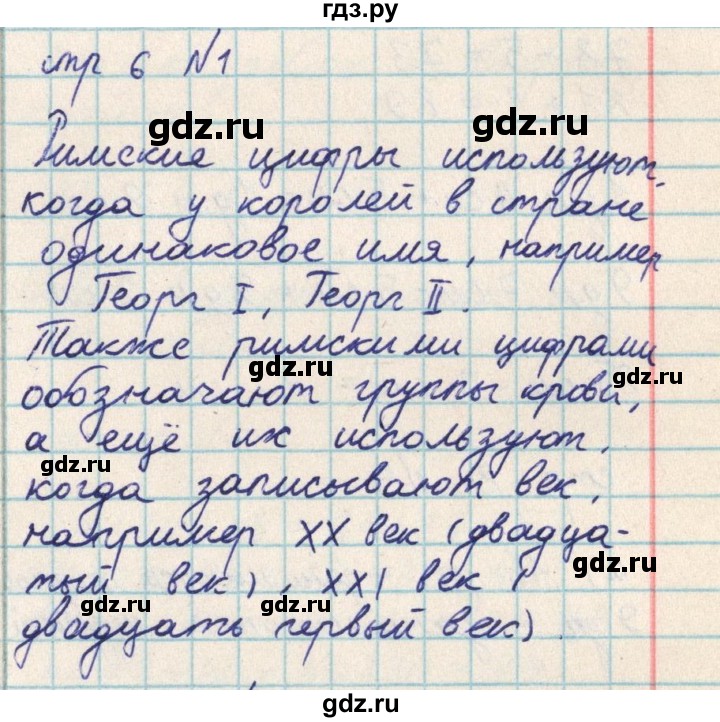 гдз.ру
стр 6 №1
gdz.ru gdz.ru
Римские цифры используют,
когда у королей в стране
одинаковое имя, например
Георг I, Георг II.
Также римскими цифрами
gdz.ru gdz.ru
ообзначают группы крови,
а ещё их используют,
gdz.ru gdz.ru
когда записывают век,
например XX век (двадца-
gdz.ru
тый век), XXI век (
gdz.ru gdz.ru
двадцать первый век)
gdz.ru